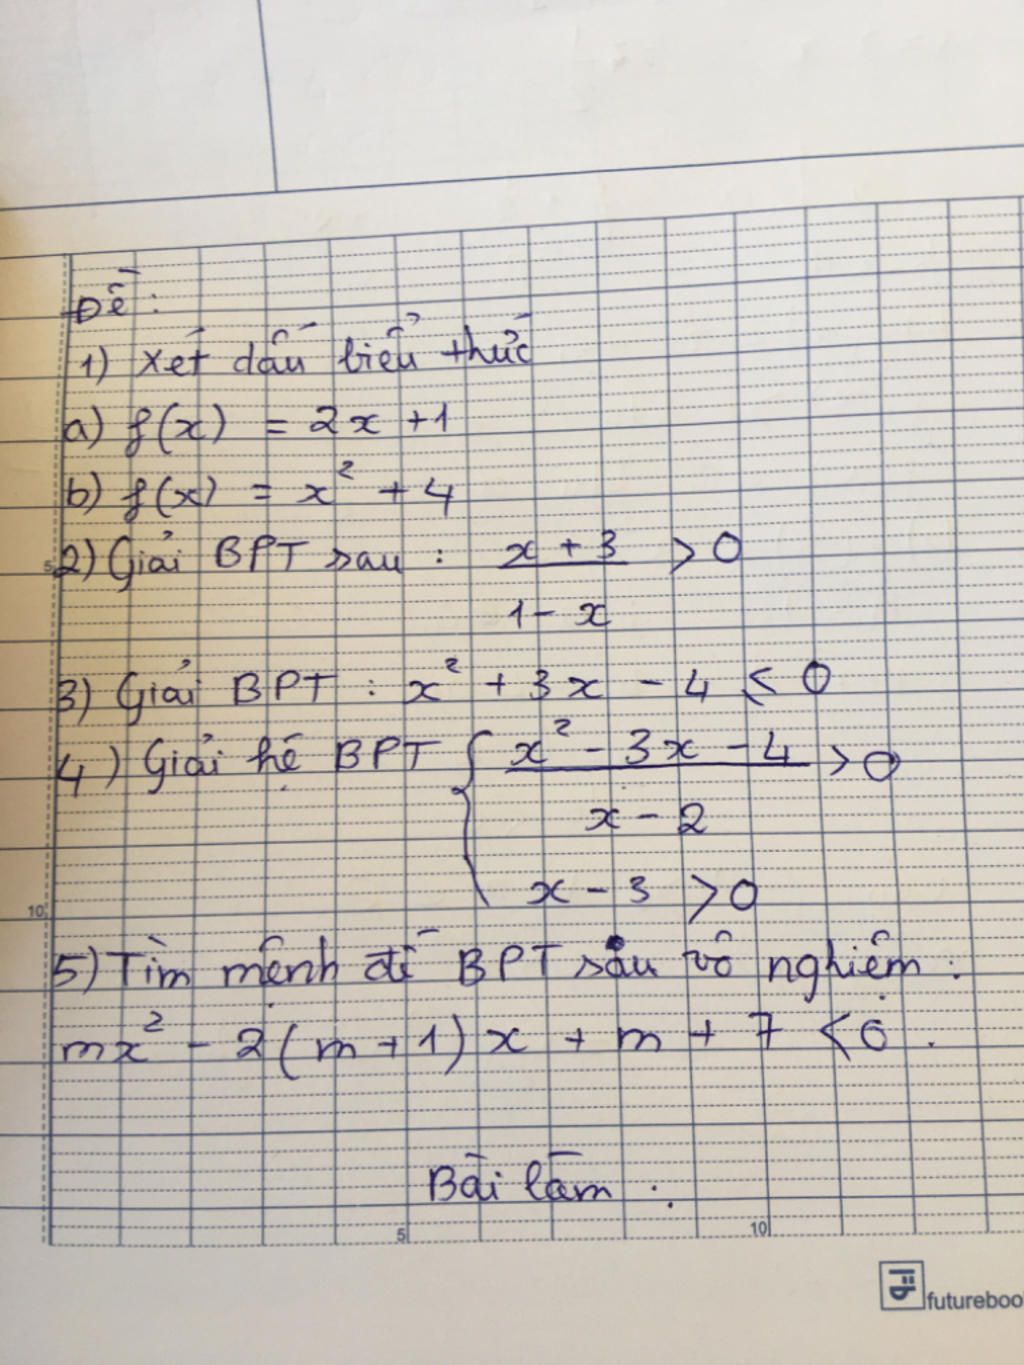 Đề:
1) Xét dấu biểu thức
a) f(x) = 2x + 1
b) f(x) = x² + 4
2) Giải BPT sau : x + 3 > 0
1 - x
3) Giải BPT : x² + 3x - 4 ≤ 0
4) Giải hệ BPT { x² - 3x - 4 > 0
x - 2
x - 3 > 0
5) Tìm mệnh đề BPT sau vô nghiệm :
mx² - 2(m + 1)x + m + 7 < 0 .
Bài làm :
5
10
5
10
futureboo